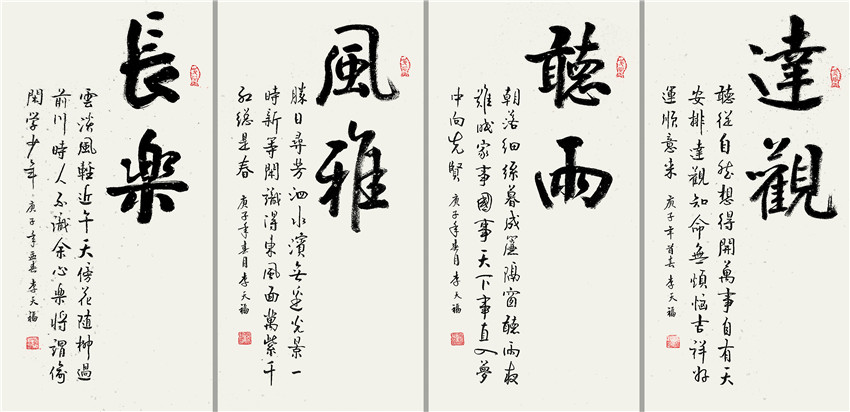 達觀
聽從自然想得開萬事自有天
安排達觀知命無煩惱吉祥好
運順意來 庚子年首春李天福
聽雨
朝落細絲暮成簾隔窗聽雨夜
難成家事國事天下事直入夢
中向先賢 庚子年春月李天福
風雅
勝日尋芳泗水濱無邊光景一
時新等閑識得東風面萬紫千
紅總是春 庚子年春月李天福
長樂
雲淡風輕近午天傍花隨柳過
前川時人不識余心樂將謂偷
閑学少年 庚子年孟春李天福